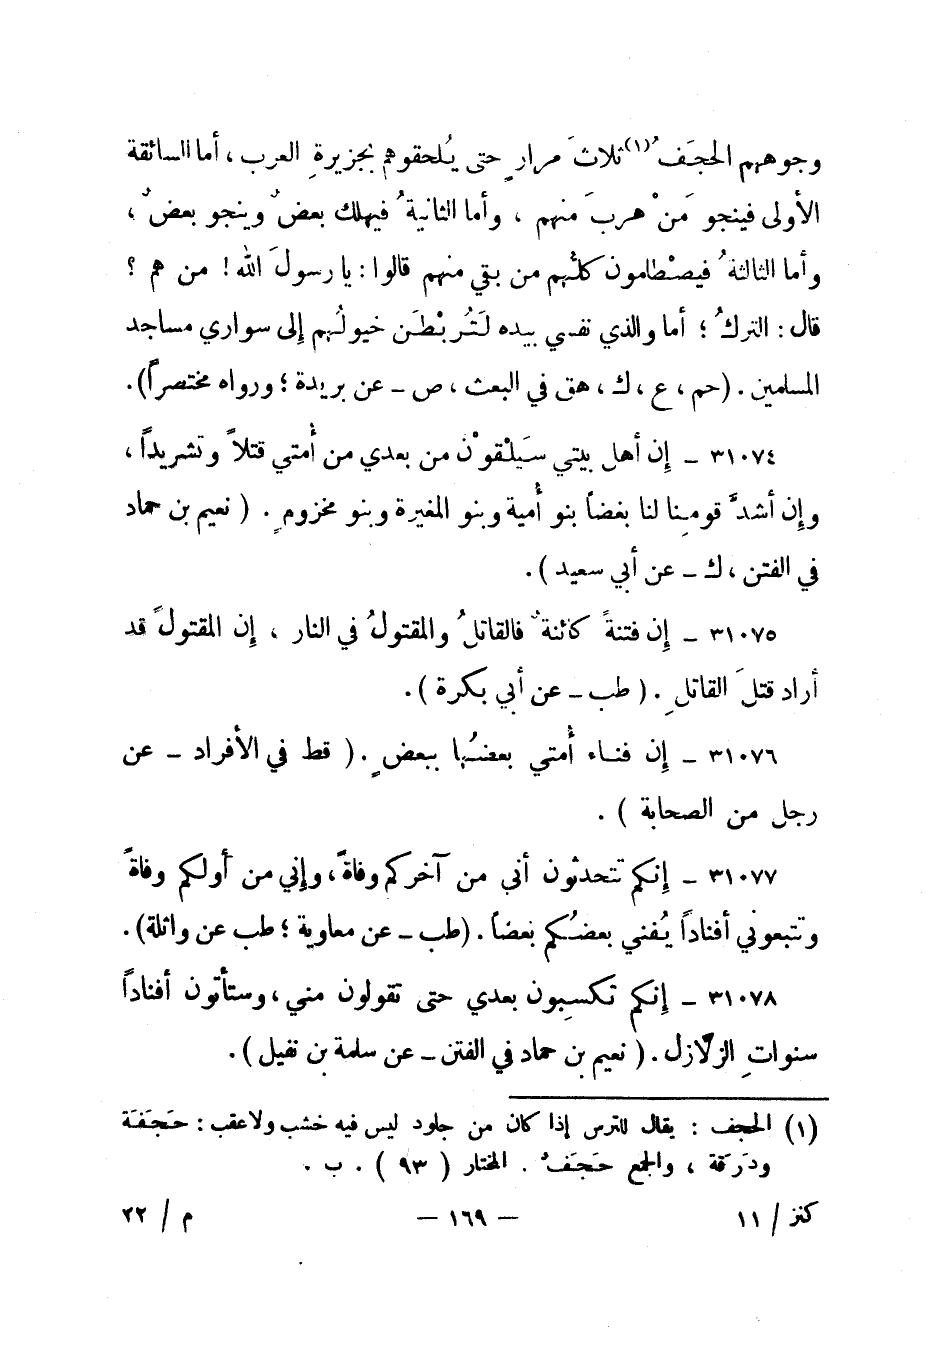 وجوههم الحجَفُ(١) ثلاثَ مرارٍ حتى يُلحقوهم بجزيرةِ العرب ، أما السائقة
الأولى فينجو مَنْ هربَ منهم ، وأما الثانيةُ فيهلك بعضٌ وينجو بعضٌ ،
وأما الثالثةُ فيصْطلمون كلُّهم من بقي منهم قالوا : يا رسولَ الله ! من هم ؟
قال : التركُ ؛ أما والذي نفسي بيده لَتُربْطَن خيولُهم إلى سواري مساجد
المسلمين . (حم ، ع ، ك ، هق في البعث ، ص ــ عن بريدة ؛ ورواه مختصراً) .
٣١٠٧٤ ــ إن أهل بيتي سَيلْقونْ من بعدي من أُمتي قتلاً وتشريداً ،
وإن أشدَّ قومِنا لنا بغضاً بنو أُمية وبنو المغيرة وبنو مخزومٍ . ( نعيم بن حماد
في الفتن ، ك ــ عن أبي سعيد ) .
٣١٠٧٥ ــ إن فتنةً كائنةٌ فالقاتلُ والمقتولُ في النار ، إن المقتولَ قد
أراد قتلَ القاتلِ . ( طب ــ عن أبي بكرة ) .
٣١٠٧٦ ــ إن فناء أُمتي بعضُها ببعضٍ . ( قط في الأفراد ــ عن
رجل من الصحابة ) .
٣١٠٧٧ ــ إنكم تتحدثون أني من آخركم وفاةً ، وإني من أولكم وفاةً
وتتبعوني أفناداً يُفني بعضُكم بعضاً . (طب ــ عن معاوية ؛ طب عن واثلة) .
٣١٠٧٨ ــ إنكم تكسِبون بعدي حتى تقولون متى ، وستأتون أفناداً
سنواتِ الزلازل . ( نعيم بن حماد في الفتن ــ عن سلمة بن نفيل ) .
(١) الحجف : يقال للترس إذا كان من جلود ليس فيه خشب ولا عقب : حَجَفَة
ودَرَقة ، والجمع حَجَفٌ . المختار ( ٩٣ ) . ب .
كنز / ١١ — ١٦٩ — م / ٢٢